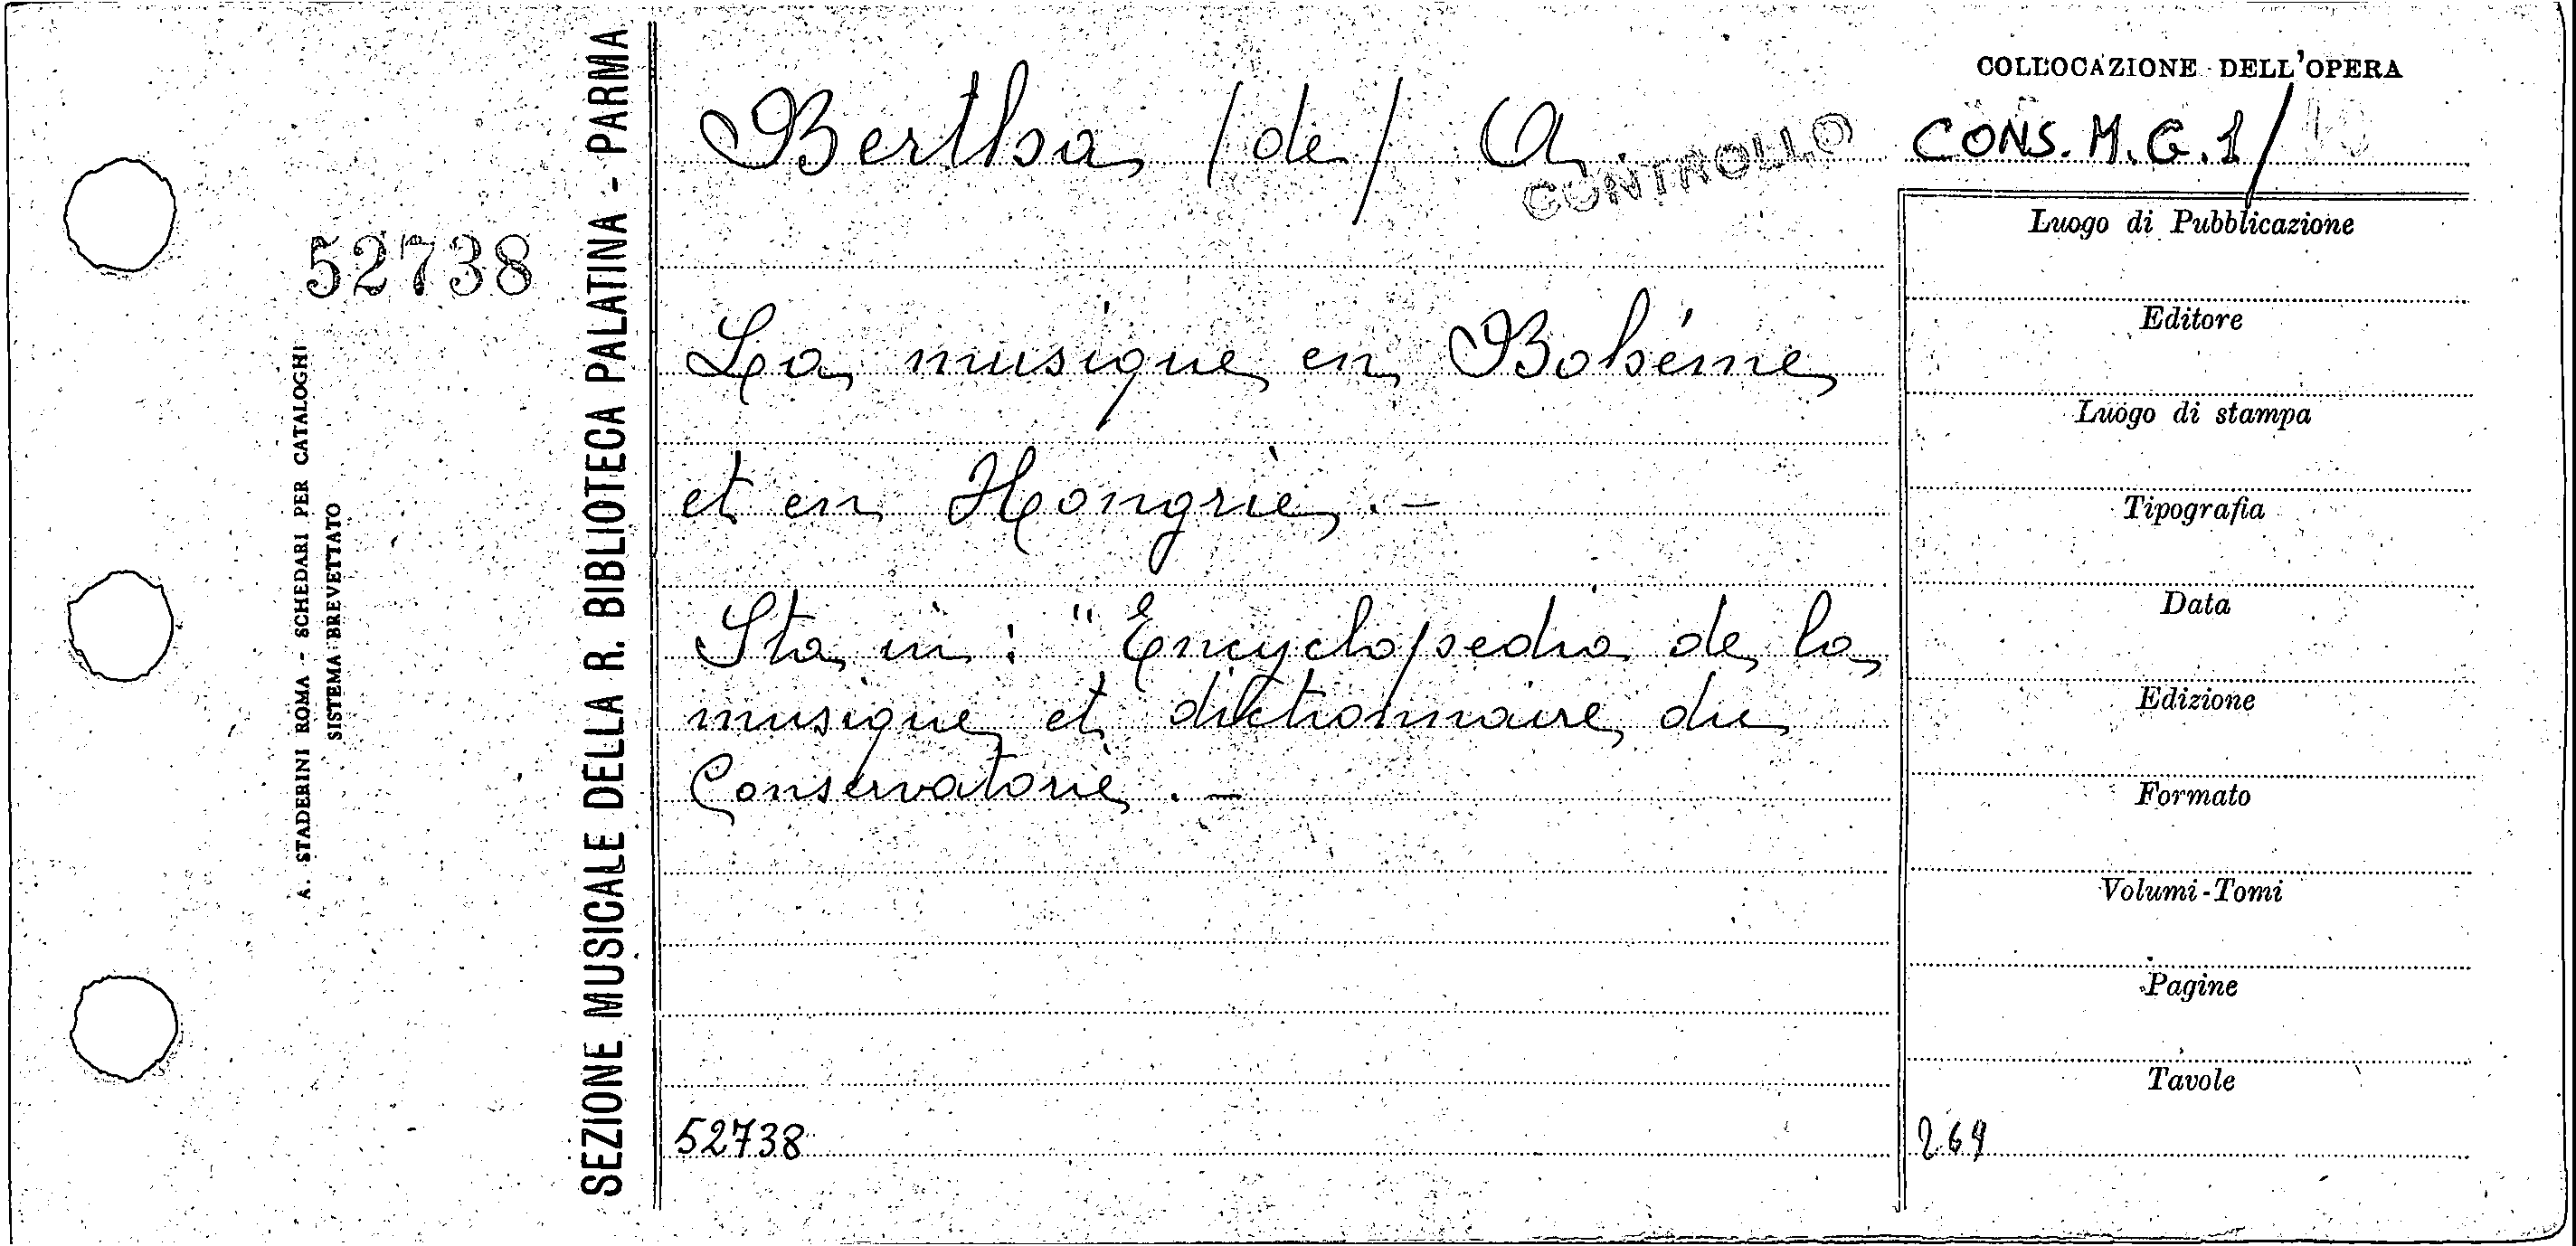 COLLOCAZIONE DELL'OPERA
Bertha /de/ A.
CONTROLLO
CONS. M. G. 1/10
52738
La musique en Bohéme
et en Hongrie.-
Sta in: "Encyclopedia de la
musique et dictionnaire du
Conservatorie.-
Luogo di Pubblicazione
Editore
Luogo di stampa
Tipografia
Data
Edizione
Formato
Volumi-Tomi
Pagine
Tavole
52738
269
SEZIONE MUSICALE DELLA R. BIBLIOTECA PALATINA - PARMA
A. STADERINI ROMA - SCHEDARI PER CATALOGHI
SISTEMA BREVETTATO